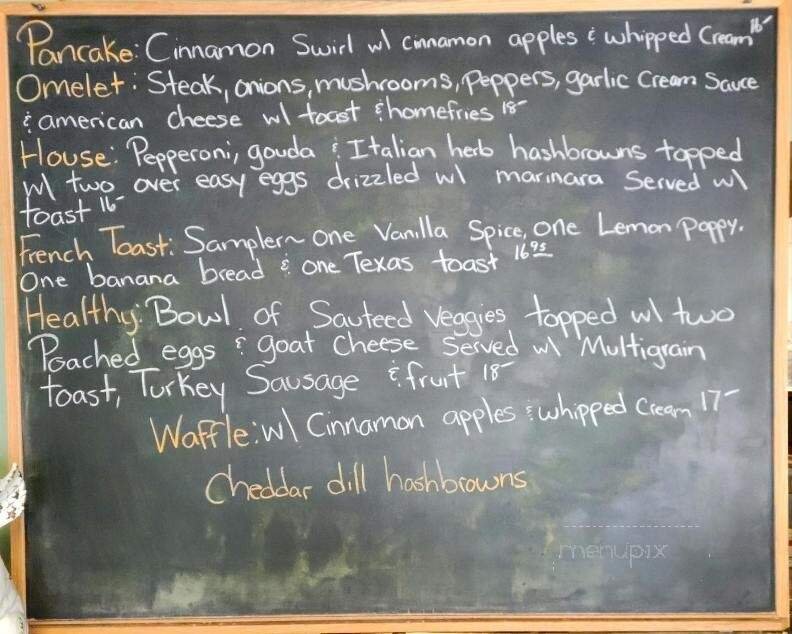 Pancake: Cinnamon Swirl w/ cinnamon apples & whipped Cream 16-
Omelet: Steak, onions, mushrooms, Peppers, garlic Cream Sauce
& american cheese w/ toast & homefries 18-
House: Pepperoni, gouda & Italian herb hashbrowns topped
w/ two over easy eggs drizzled w/ marinara Served w/
toast 16-
French Toast: Sampler~ One Vanilla Spice, One Lemon Poppy.
One banana bread & one Texas toast 16.95
Healthy: Bowl of Sauteed Veggies topped w/ two
Poached eggs & goat Cheese Served w/ Multigrain
toast, Turkey Sausage & fruit 18-
Waffle: w/ Cinnamon apples & whipped Cream 17-
Cheddar dill hashbrowns
menupix